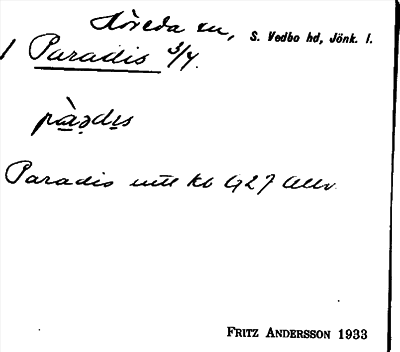 Höreda sn, S. Vedbo hd, Jönk. l.
1 Paradis 3/4.
pàədɩs
Paradis utt Kb 427 Allv.
FRITZ ANDERSSON 1933